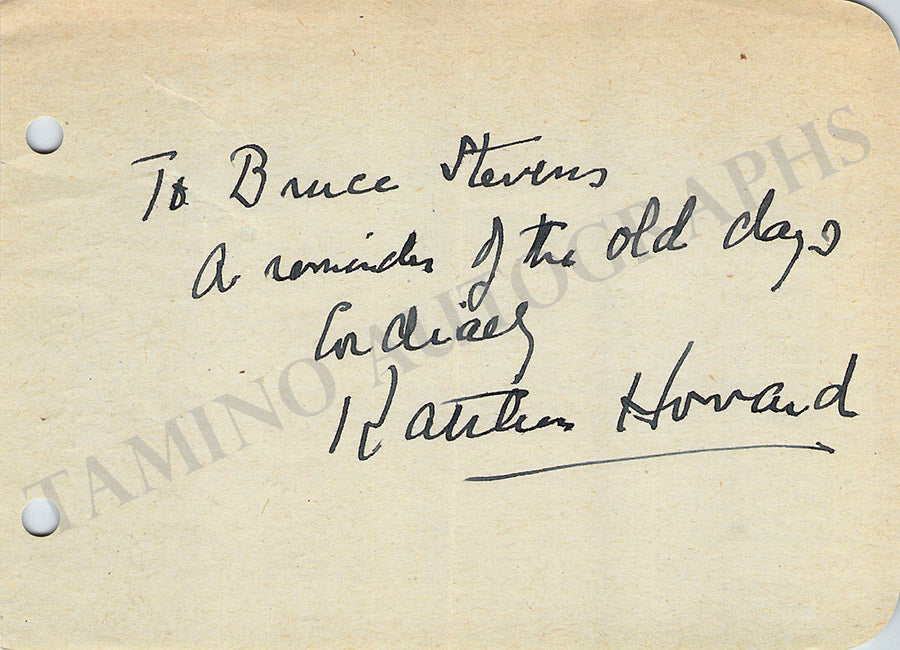 To Bruce Stevens
A reminder of the old days
Cordially
Kathleen Howard
TAMINO AUTOGRAPHS